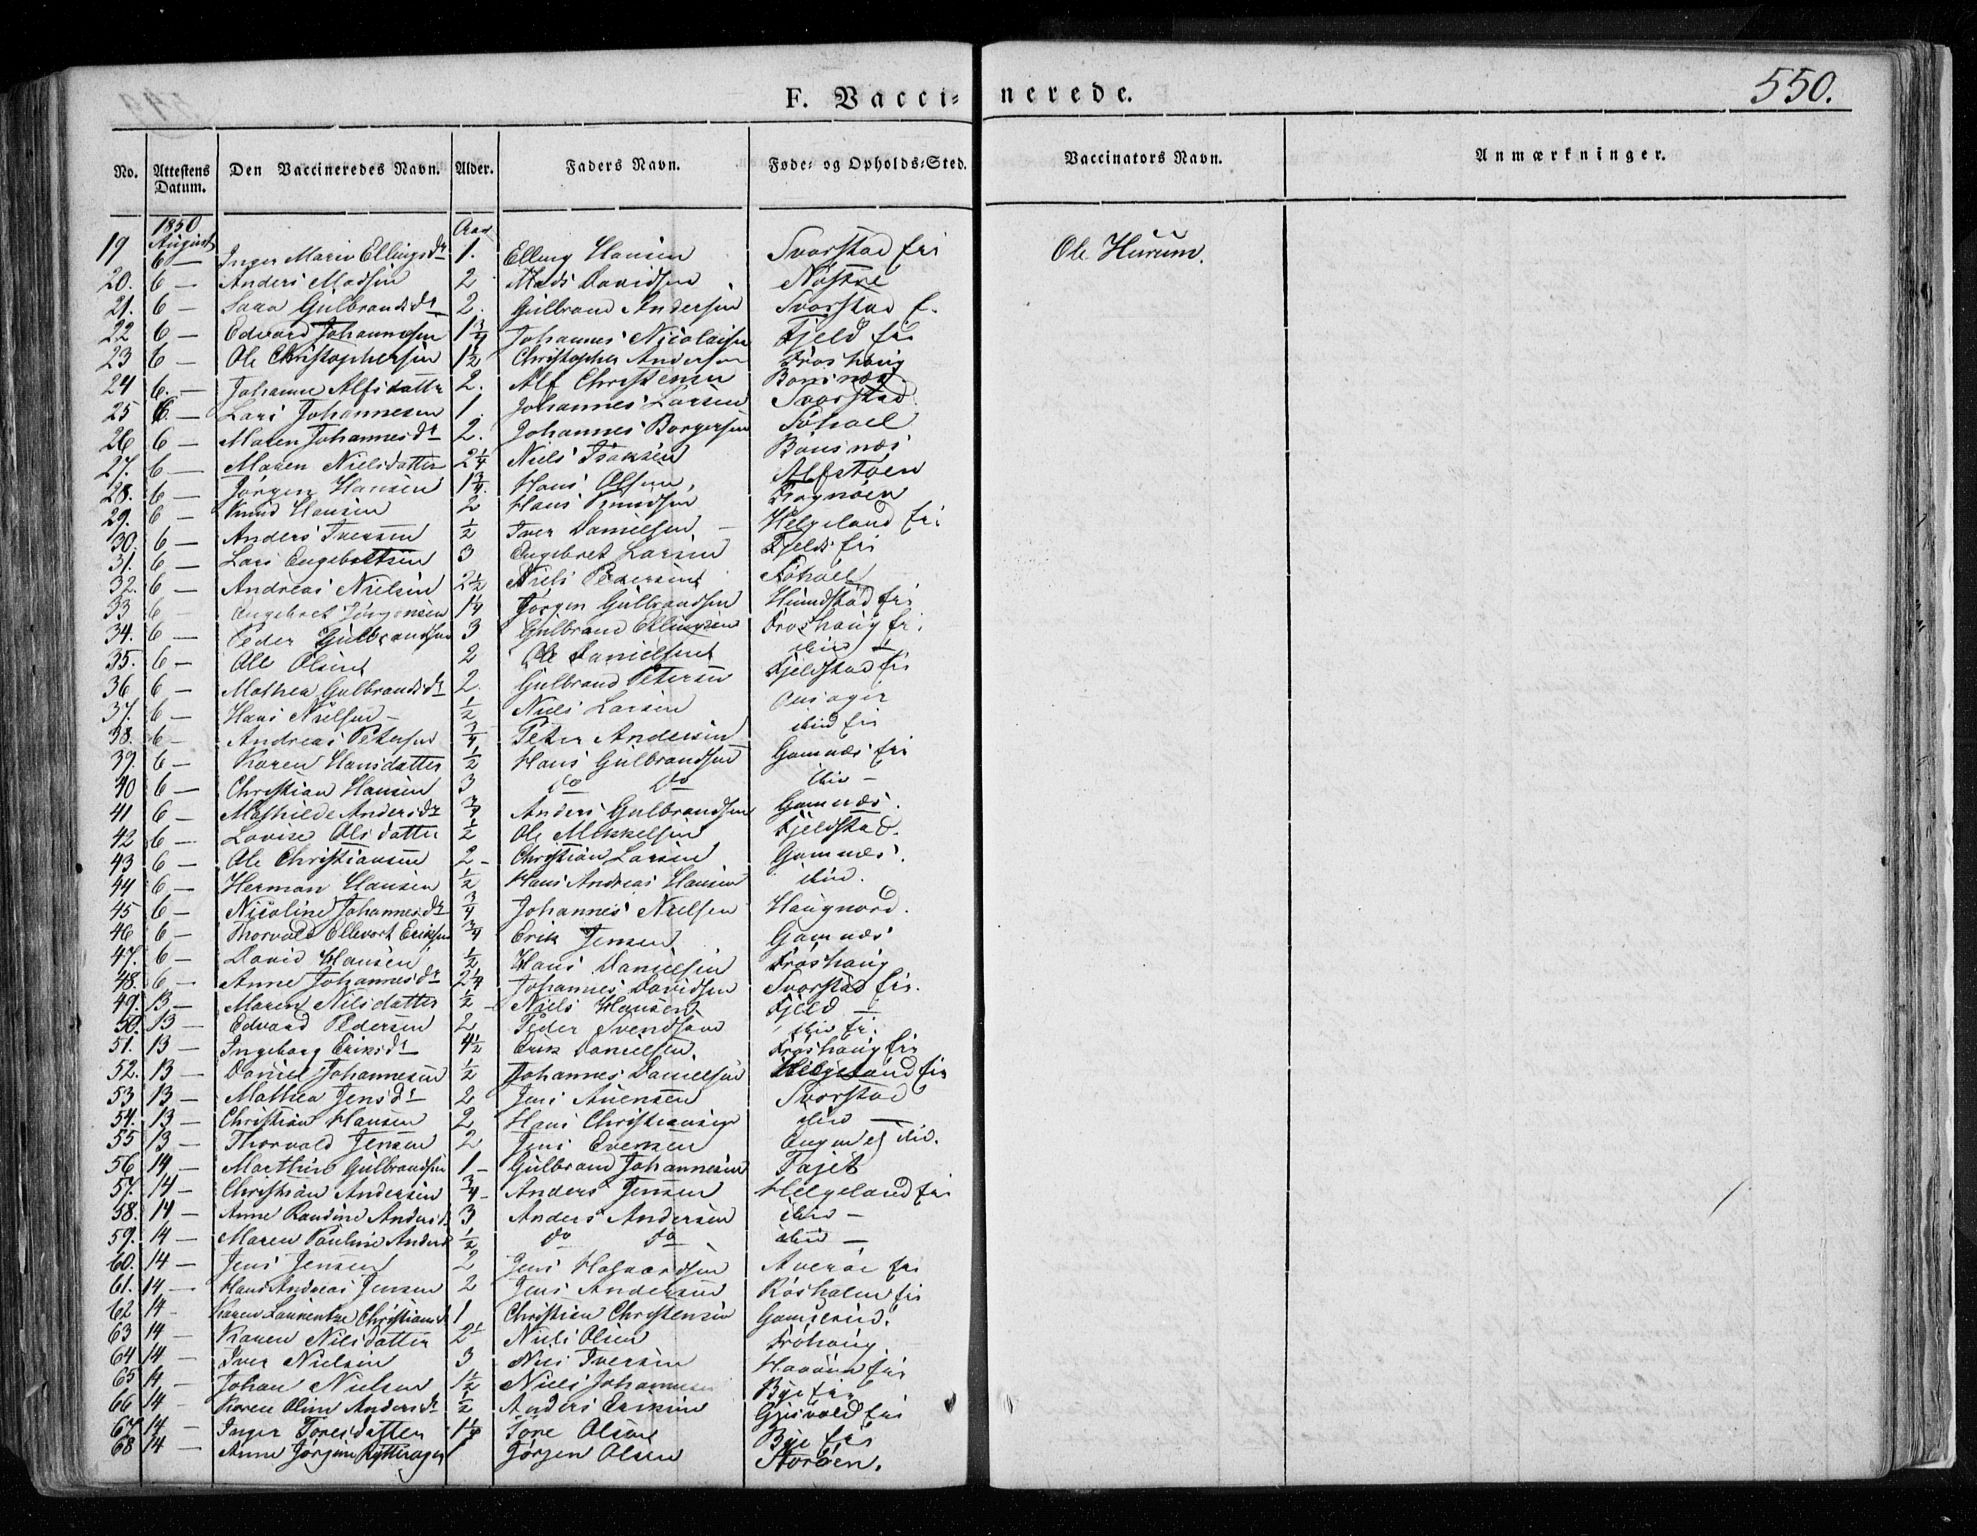 F. Vaccinerede.
550.
No. Attestens Datum. Den Vaccineredes Navn. Alder. Faders Navn. Føde- og Opholds-Sted. Vaccinators Navn. Anmærkninger.
1850 August Aar
19 6 — Inger Marie Ellingsdr 1. Elling Hansen Svarstad fri Ole Hurum.
20. 6 — Anders Madsen 2 Mads Davidsen
21. 6 — Gulbrandsdr 2. Gulbrand Andersen Svarstad f.
22 6 — Edvard Johannesen 1¾ Johannes Nicolaisen Fjeld fri
23 6 — Ole Christophersen 1½ Christopher Andersen Froshaug
24 6. — Johanne Alfsdatter 2. Alf Christensen Bønsnæs
25 6 — Lars Johannesen 1. Johannes Larsen Svarstad
26 6 — Maren Johannesdr 2. Johannes Borgersen Søhoel
27. 6 — Maren Nielsdatter 2¼ Niels Isaksen Bønsnæs
28. 6 — Jørgen Hansen 1¾ Hans Olsen, Alfstøen
29. 6 — Knud Hansen 2 Hans Knudsen Frognøen
30. 6 — Anders Iversen ½ Iver Danielsen — Helgeland fri
31. 6 — Lars Engebretsen 3 Engebret Larsen Fjeld fri
32. 6 — Andreas Nielsen 2½ Niels Pedersen Søhoel
33 6 — Engebret Jørgensen 1¼ Jørgen Gulbrandsen Hundstad fri
34. 6 — Peder Gulbrandsen 3 Gulbrand Ellingsen Froshaug fri
35. 6 — Ole Olsen 2 Ole Danielsen ibid —
36 6 — Mathea Gulbrandsdr 2. Gulbrand Petersen Fjeldstad fri
37. 6 — Hans Nielsen — ½ Niels Larsen Onsager
38. 6 — Andreas Petersen ¾ Peter Andersen ibid fri
39. 6 — Karen Hansdatter ½ Hans Gulbrandsen Gomnæs fri
40 6 — Christian Hansen 3 do do ibid —
41 6 — Mathilde Andersdr ¾ Anders Gulbrandsen Gomnæs.
42 6 — Lovise Olsdatter ½ Ole Mikkelsen Fjeldstad.
43 6 — Ole Christiansen 2 — Christian Larsen Gomnæs.
44 6 — Herman Hansen ½ Hans Andreas Hansen ibid.
45 6 — Nicoline Johannesdr ¾ Johannes Nielsen Haugnord.
46 6 — Thorvald Ellevart Eriksen ¾ Erik Jensen Gomnæs
47. 6 — David Hansen ½ Hans Danielsen Froshaug
48. 6 — Anne Johannesdr 2¼ Johannes Davidsen Svarstad fri.
49. 13 — Maren Nilsdatter ½ — Niels Hansen Fjeld —
50. 13 — Edvard Pedersen 2 Peder Svendsen ibid fri.
51. 13 — Ingeborg Eriksdr 4½ Erik Danielsen. Froshaug fri
52. 13 — Daniel Johannesen ½ Johannes Danielsen Helgeland fri
53 13 — Mathea Jensdr 2 Jens Svarstad
54. 13 — Christian Hansen 2 Hans Christiansen ibid —
55 13 — Thorvald Jensen 2 Jens Evensen
56 14, — Marthin Gulbrandsen 1 — Gulbrand Johannesen Tajet
57. 14 — Christian Andersen ¾ — Anders Jensen Helgeland fri
58. 14 — Anne Randine Andersd 3 Anders Andersen ibid —
59. 14 — Maren Pauline Andersd ½ do do ibid —
60. 14 — Jens Jensen 2 Jens Averøe fri
61. 14, — Hans Andreas Jensen 2 Jens Andersen Røsholm fri
62 14 — Karen Laurentze Christiansd 1 Christian Christensen Gomserud.
63 14 — Karen Nilsdatter 2½ Niels Olsen Frøhaug
64 14 — Iver Nielsen 3 Niels Iversen fri
65 14 — Johan Nielsen 1½ Niels Johannesen Bye fri
66 14 — Karen Oline Andersdr ½ Anders Eriksen Gjesvold fri
67. 14 — Inger Toresdatter 1¼ Tore Olsen Bye fri
68 14 — Anne Jørgine Rytterager 1 Jørgen Olsen Storøen.